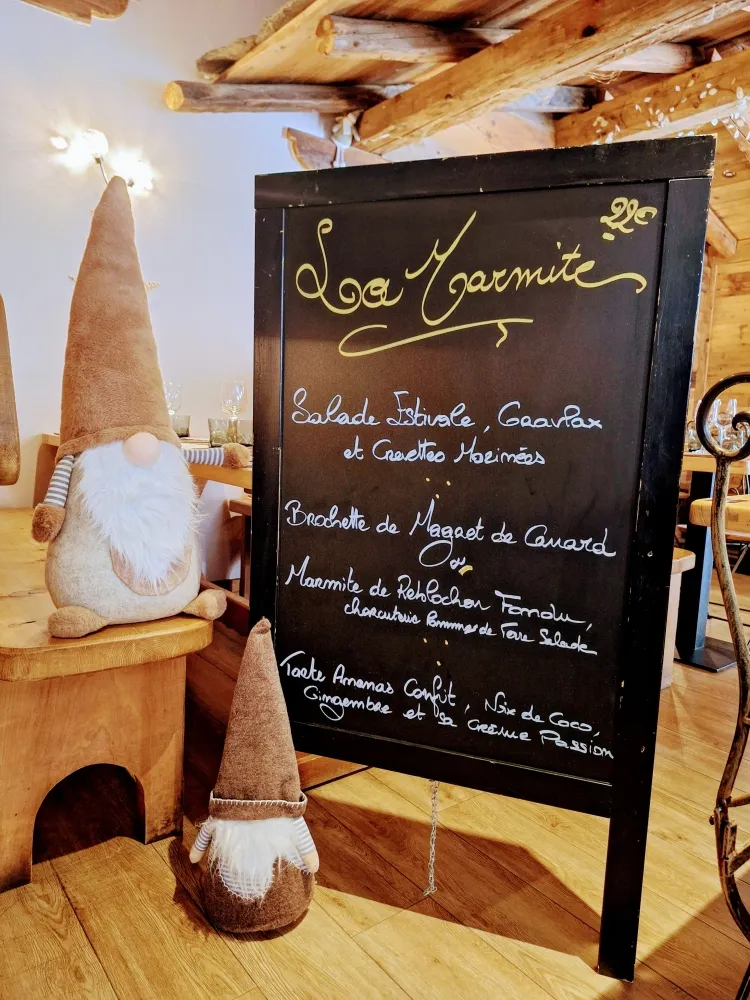 22€
La Marmite
Salade Estivale, Gravlax
et Crevettes Marinées
Brochette de Magret de Canard
ou
Marmite de Reblochon Fondu,
charcuterie Pommes de Terre Salade
Tarte Ananas Confit, Noix de Coco,
Gingembre et sa Crème Passion